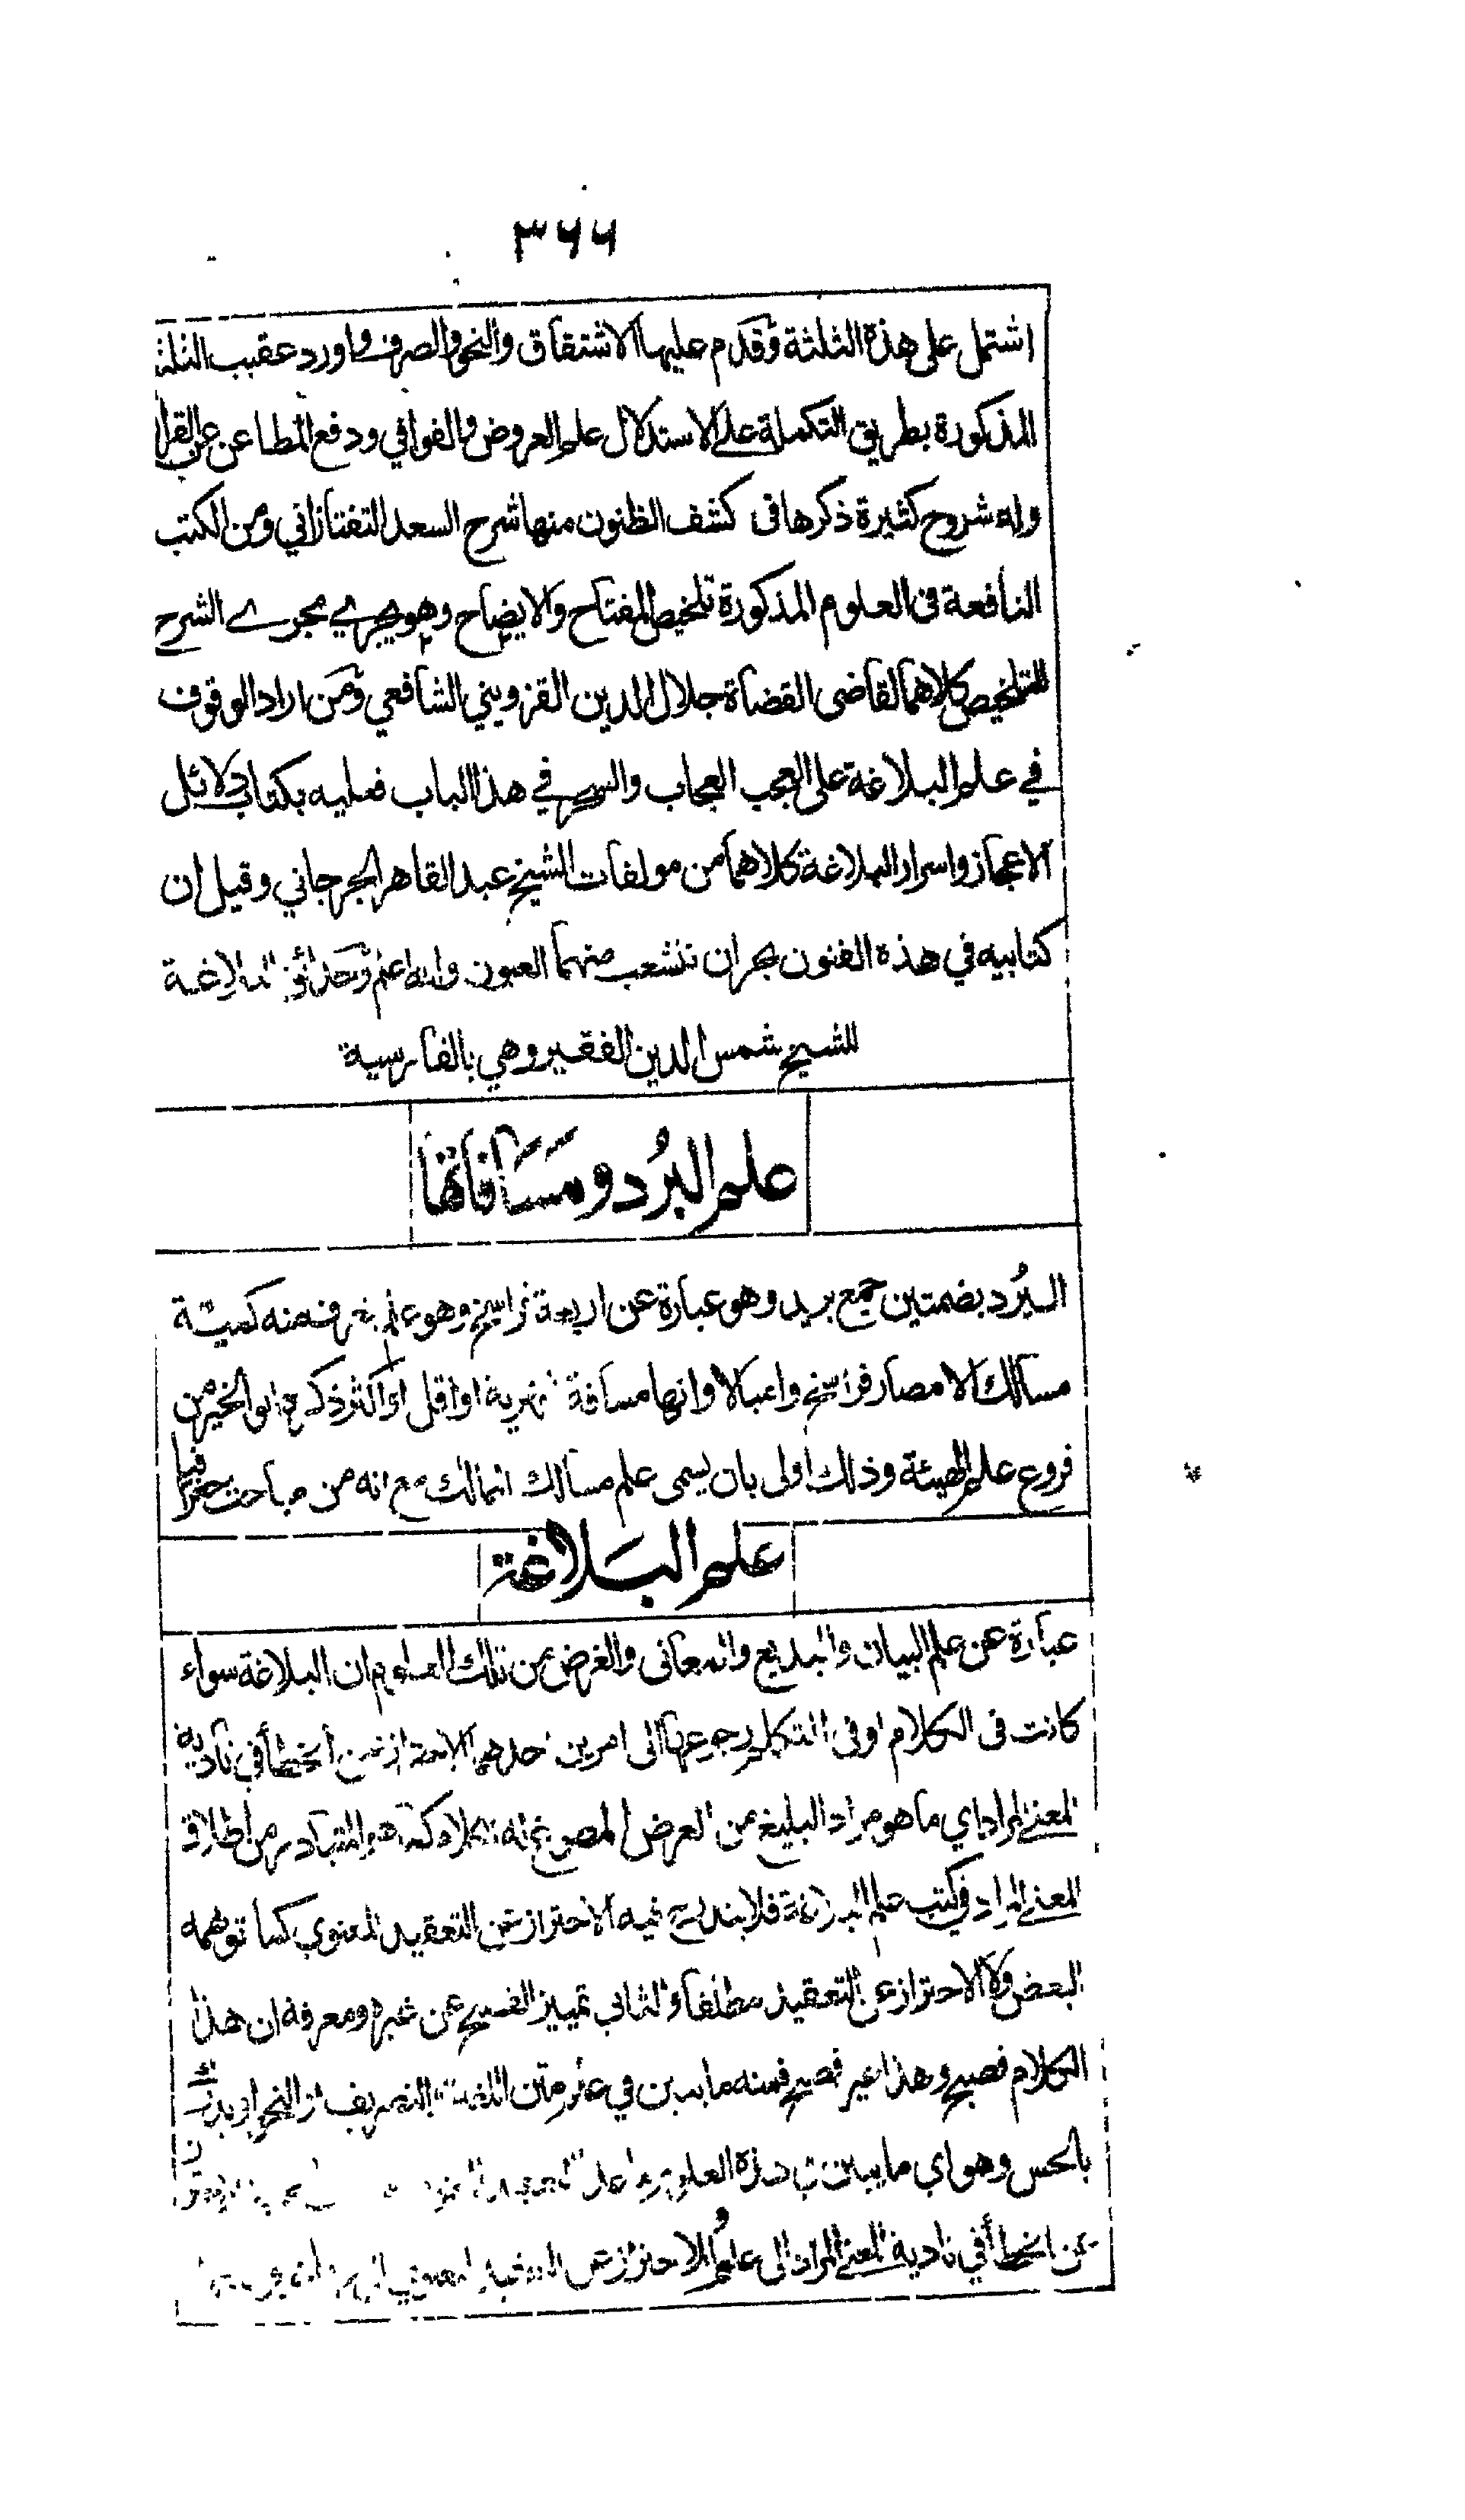 ٣٦٦
اشتمل على هذه الثلثة وقدم عليها الاشتقاق والنحو والصرف واورد عقيب الثلثة
المذكورة بطريق التكملة علم الاستدلال علم العروض والقوافي ودفع المطاعن عن القران
وله شروح كثيرة ذكرها في كشف الظنون منها شرح السعد التفتازاني ومن الكتب
النافعة في العلوم المذكورة تلخيص المفتاح والايضاح وهو يجري مجرے الشرح
للتلخيص كلاهما لقاضى القضاة جلال الدين القزويني الشافعي ومن اراد الوقوف
في علم البلاغة على العجب العجاب والسحر في هذا الباب فعليه بكتاب دلائل
الاعجاز واسرار البلاغة كلاهما من مولفات الشيخ عبد القاهر الجرجاني وقيل ان
كتابيه في هذه الفنون بحران تنشعب منهما العيون والله اعلم وحدائق البلاغة
للشيخ شمس الدين الفقير وهي بالفارسية
علم البُرد ومَسَافاتها
البُرد بضمتين جمع بريد وهو عبارة عن اربعة فراسخ وهو علم يتعرف منه كمية
مسالك الامصار فراسخ واميالا وانها مسافة شهرية او اقل او اكثر ذكره ابو الخير من
فروع علم الهيئة وذلك اولى بان يسمى علم مسالك الممالك مع انه من مباحث جغرافيا
علم البَلاغة
عبارة عن علم البيان والبديع والمعاني والغرض من تلك العلوم ان البلاغة سواء
كانت في الكلام او في المتكلم رجوعها الى امرين احدهما الاحتراز عن الخطأ في تادية
المعنى المراد اي ما هو مراد البليغ من الغرض المصوغ له الكلام كما هو المتبادر من اطلاق
المعنى المراد في كتب علم البلاغة فلا يندرج فيه الاحتراز عن التعقيد المعنوي كما توهمه
البعض ولا الاحتراز عن التعقيد مطلقا والثاني تمييز الفصيح عن غيره ومعرفة ان هذا
الكلام فصيح وهذا غير فصيح فمنه ما يبين في علم متن اللغة او التصريف او النحو او يدرك
بالحس وهو اي ما يبين في هذه العلوم ما عدا التعقيد المعنوي
عن الخطأ في تادية المعنى المراد الى علم والاحتراز عن التعقيد المعنوي الى